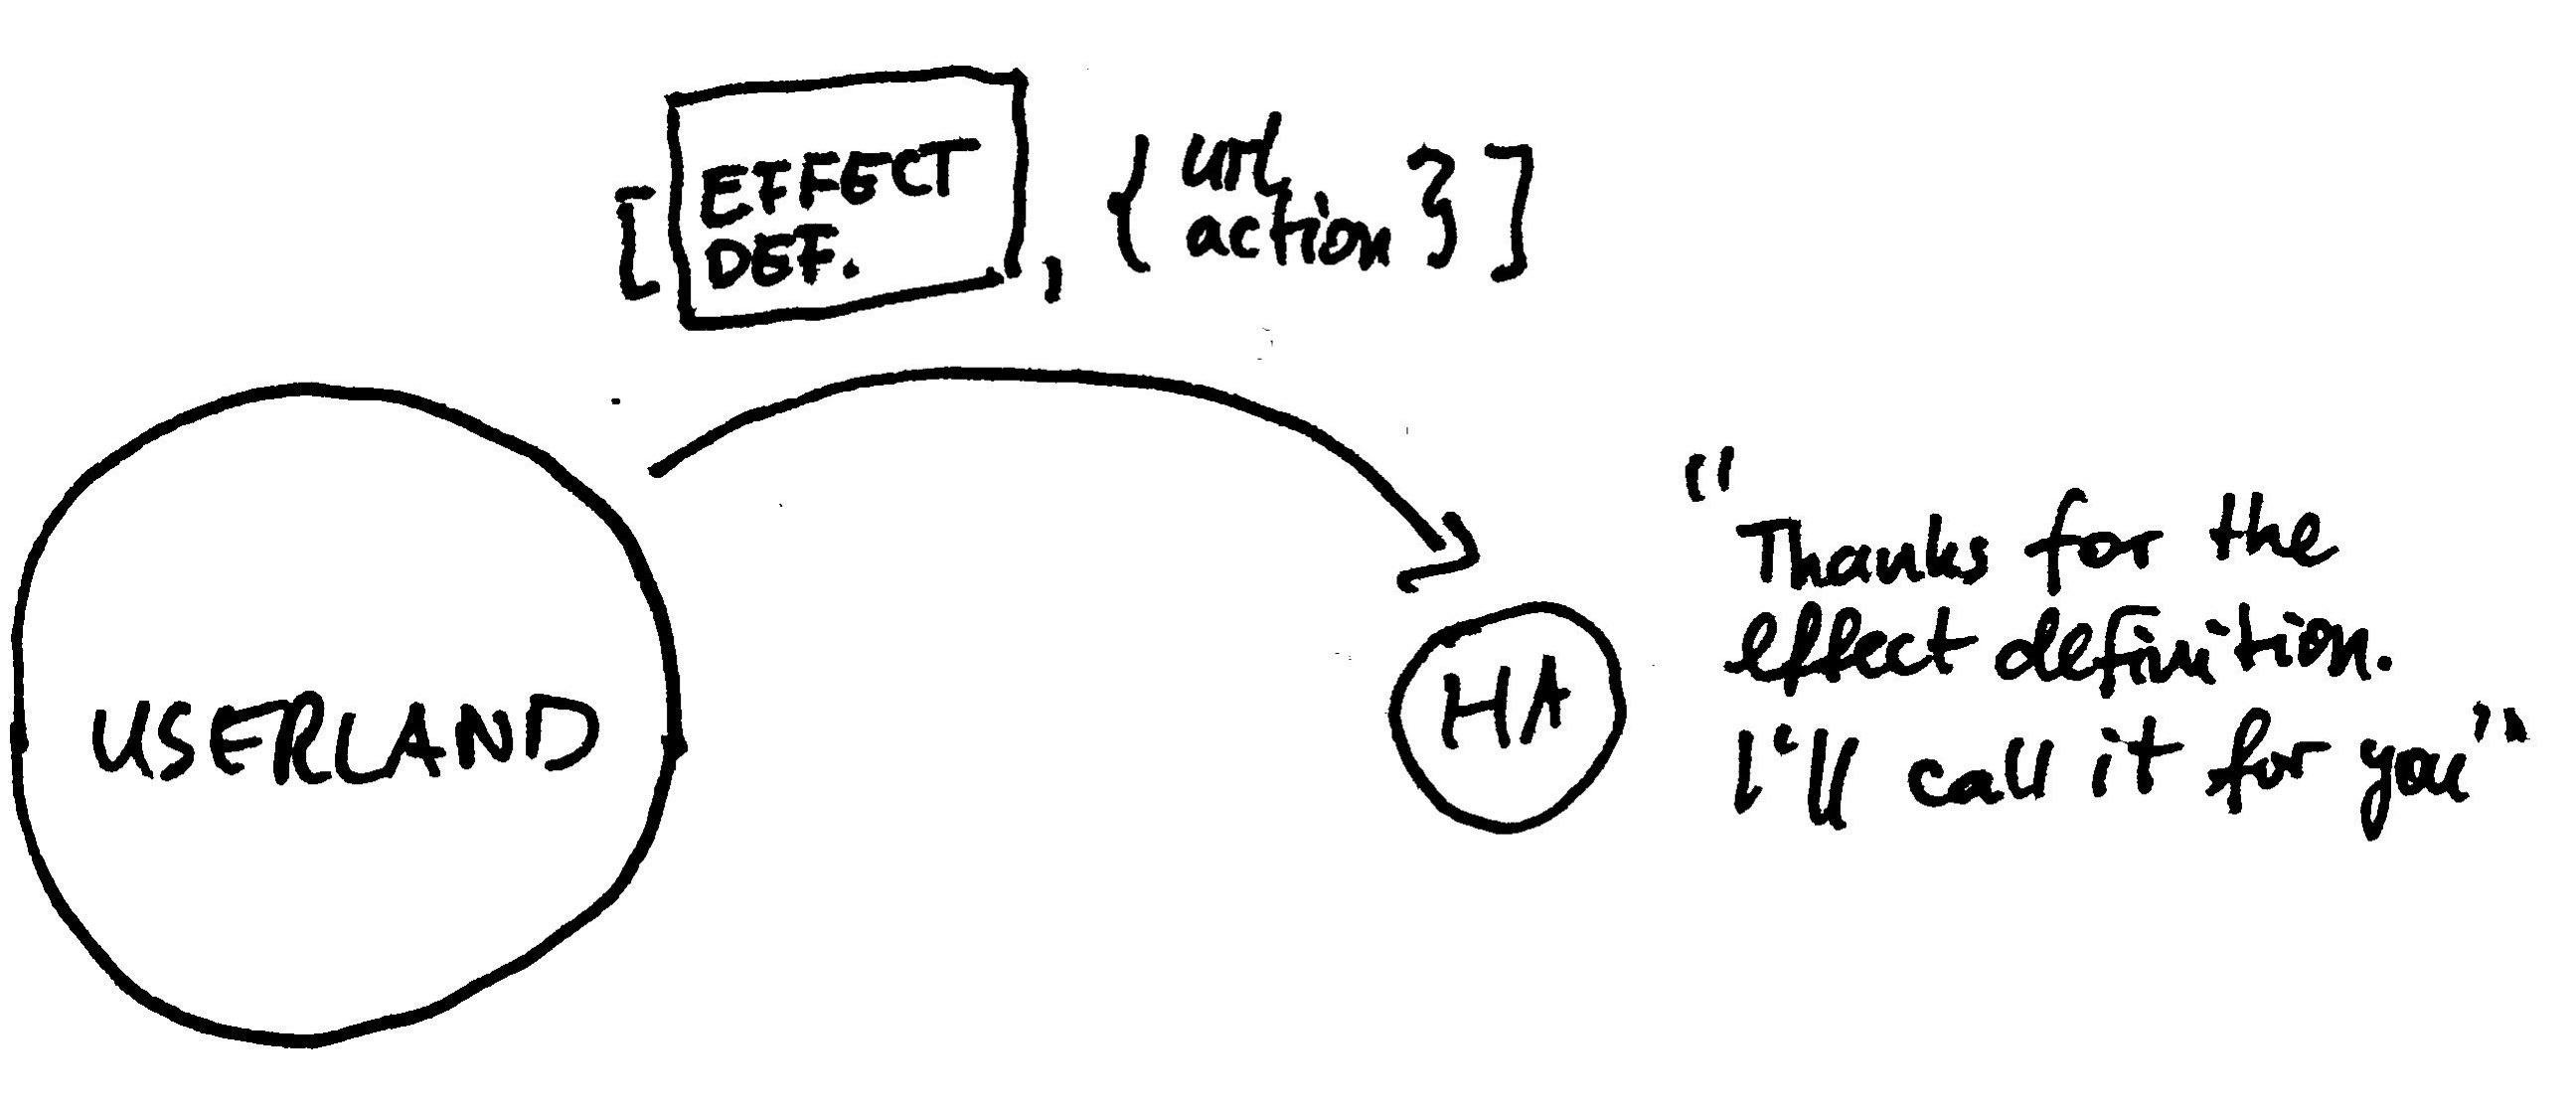 [ EFFECT DEF. , { url, action } ]
USERLAND
HA
"Thanks for the
effect definition.
I'll call it for you"